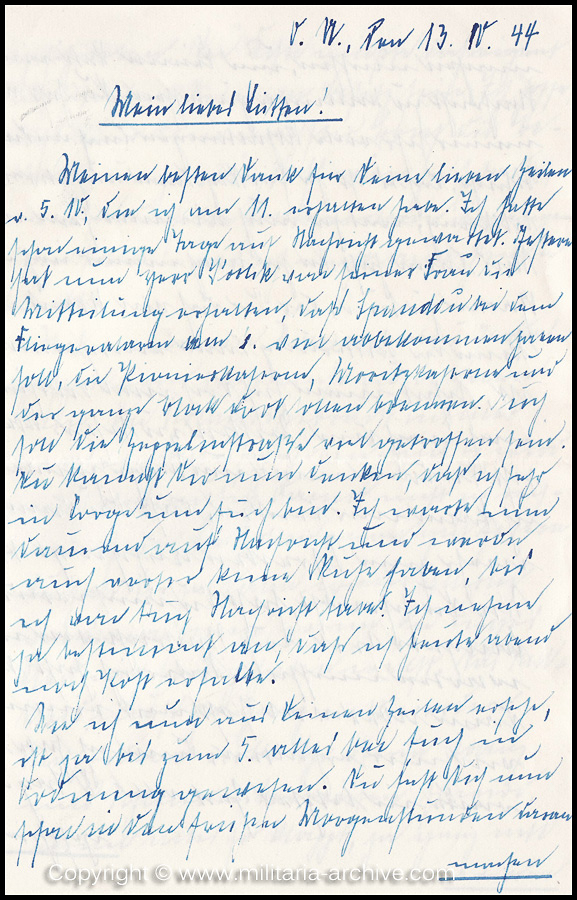 O. U., Den 13. IV. 44
Mein liebes Lütten!
Meinen besten Dank für Deine lieben Zeilen
v. 5. IV. die ich am 11. erhalten habe. Ich hatte
schon einige Tage auf Nachricht gewartet. Gestern
hat nun Herr von seiner Frau die
Mitteilung erhalten, daß Spandau bei dem
Fliegeralarm am viel abbekommen haben
soll, die Pionierkaserne, Moritzkaserne und
der ganze Block dort ollen brennen. Auch
soll die Zeppelinstraße viel getroffen sein.
Du kannst Dir nun denken, daß ich sehr
in Sorge um Euch bin. Ich warte nun
dauernd auf Nachricht und werde
auch vorher keine Ruhe haben, bis
ich von Euch Nachricht habe. Ich nehme
ja bestimmt an, daß ich heute abend
noch Post erhalte.
Wie ich nun aus Deinen Zeilen ersehe,
ist ja bis zum 5. alles bei Euch in
Ordnung gewesen. Du hast Dich nun
schon in den frühen Morgenstunden daran
machen
Copyright © www.militaria-archive.com